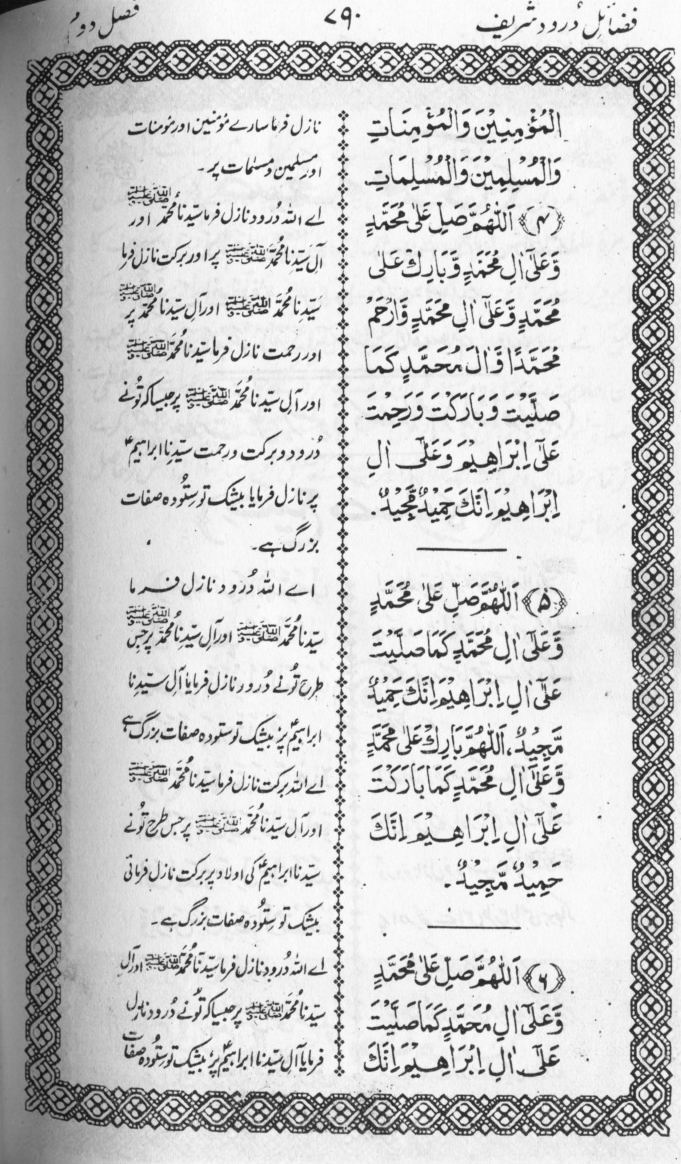 فضائل درود شریف
۷۹۰
فصل دوم
الْمُؤْمِنِيْنَ وَالْمُؤْمِنَاتِ
وَالْمُسْلِمِيْنَ وَالْمُسْلِمَاتِ۔
﴿۴﴾ اَللّٰهُمَّ صَلِّ عَلٰی مُحَمَّدٍ
وَّعَلٰٓی اٰلِ مُحَمَّدٍ وَّبَارِكْ عَلٰی
مُحَمَّدٍ وَّعَلٰٓی اٰلِ مُحَمَّدٍ وَّارْحَمْ
مُحَمَّدًا وَّاٰلَ مُحَمَّدٍ كَمَا
صَلَّيْتَ وَبَارَكْتَ وَرَحِمْتَ
عَلٰٓی اِبْرَاهِيْمَ وَعَلٰٓی اٰلِ
اِبْرَاهِيْمَ اِنَّكَ حَمِيْدٌ مَّجِيْدٌ۔
﴿۵﴾ اَللّٰهُمَّ صَلِّ عَلٰی مُحَمَّدٍ
وَّعَلٰٓی اٰلِ مُحَمَّدٍ كَمَا صَلَّيْتَ
عَلٰٓی اٰلِ اِبْرَاهِيْمَ اِنَّكَ حَمِيْدٌ
مَّجِيْدٌ، اَللّٰهُمَّ بَارِكْ عَلٰی مُحَمَّدٍ
وَّعَلٰٓی اٰلِ مُحَمَّدٍ كَمَا بَارَكْتَ
عَلٰٓی اٰلِ اِبْرَاهِيْمَ اِنَّكَ
حَمِيْدٌ مَّجِيْدٌ۔
﴿۶﴾ اَللّٰهُمَّ صَلِّ عَلٰی مُحَمَّدٍ
وَّعَلٰٓی اٰلِ مُحَمَّدٍ كَمَا صَلَّيْتَ
عَلٰٓی اٰلِ اِبْرَاهِيْمَ اِنَّكَ
نازل فرما سارے مؤمنین اور مؤمنات
اور مسلمین و مسلمات پر۔
اے اللہ دُرُود نازل فرما سیّدنا مُحمّد ﷺ اور
آلِ سیّدنا مُحمّد ﷺ پر اور برکت نازل فرما
سیّدنا مُحمّد ﷺ اور آلِ سیّدنا مُحمّد ﷺ پر
اور رحمت نازل فرما سیّدنا مُحمّد ﷺ
اور آلِ سیّدنا مُحمّد ﷺ پر جیسا کہ تُو نے
دُرود و برکت و رحمت سیّدنا ابراہیمؑ
پر نازل فرمایا بیشک تو ستُودہ صفات
بزرگ ہے۔
اے اللہ دُرُود نازل فرما
سیّدنا مُحمّد ﷺ اور آل سیّدنا مُحمّد ﷺ پر جس
طرح تُو نے دُرود نازل فرمایا آلِ سیّدنا
ابراہیمؑ پر بیشک تو ستودہ صفات بزرگ ہے
اے اللہ برکت نازل فرما سیّدنا مُحمّد ﷺ
اور آلِ سیّدنا مُحمّد ﷺ پر جس طرح تُو نے
سیّدنا ابراہیمؑ کی اولاد پر برکت نازل فرمائی
بیشک تو ستُودہ صفات بزرگ ہے۔
اے اللہ دُرود نازل فرما سیّدنا مُحمّد ﷺ اور آل
سیّدنا مُحمّد ﷺ پر جیسا کہ تُو نے دُرود نازل
فرمایا آلِ سیّدنا ابراہیمؑ پر بیشک تو ستُودہ صفات